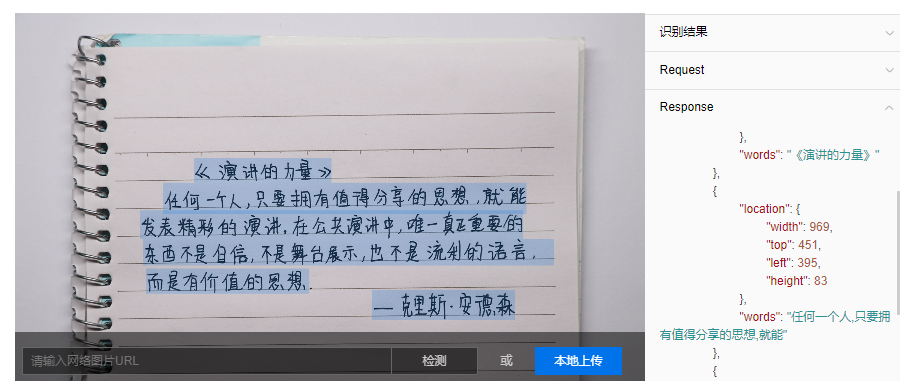 《演讲的力量》
任何一个人,只要拥有值得分享的思想,就能
发表精彩的演讲.在公共演讲中,唯一真正重要的
东西不是自信,不是舞台展示,也不是流利的语言,
而是有价值的思想.
—克里斯·安德森
请输入网络图片URL
检测
或
本地上传
识别结果
Request
Response
},
"words": "《演讲的力量》"
},
{
"location": {
"width": 969,
"top": 451,
"left": 395,
"height": 83
},
"words": "任何一个人,只要拥
有值得分享的思想,就能"
},
{